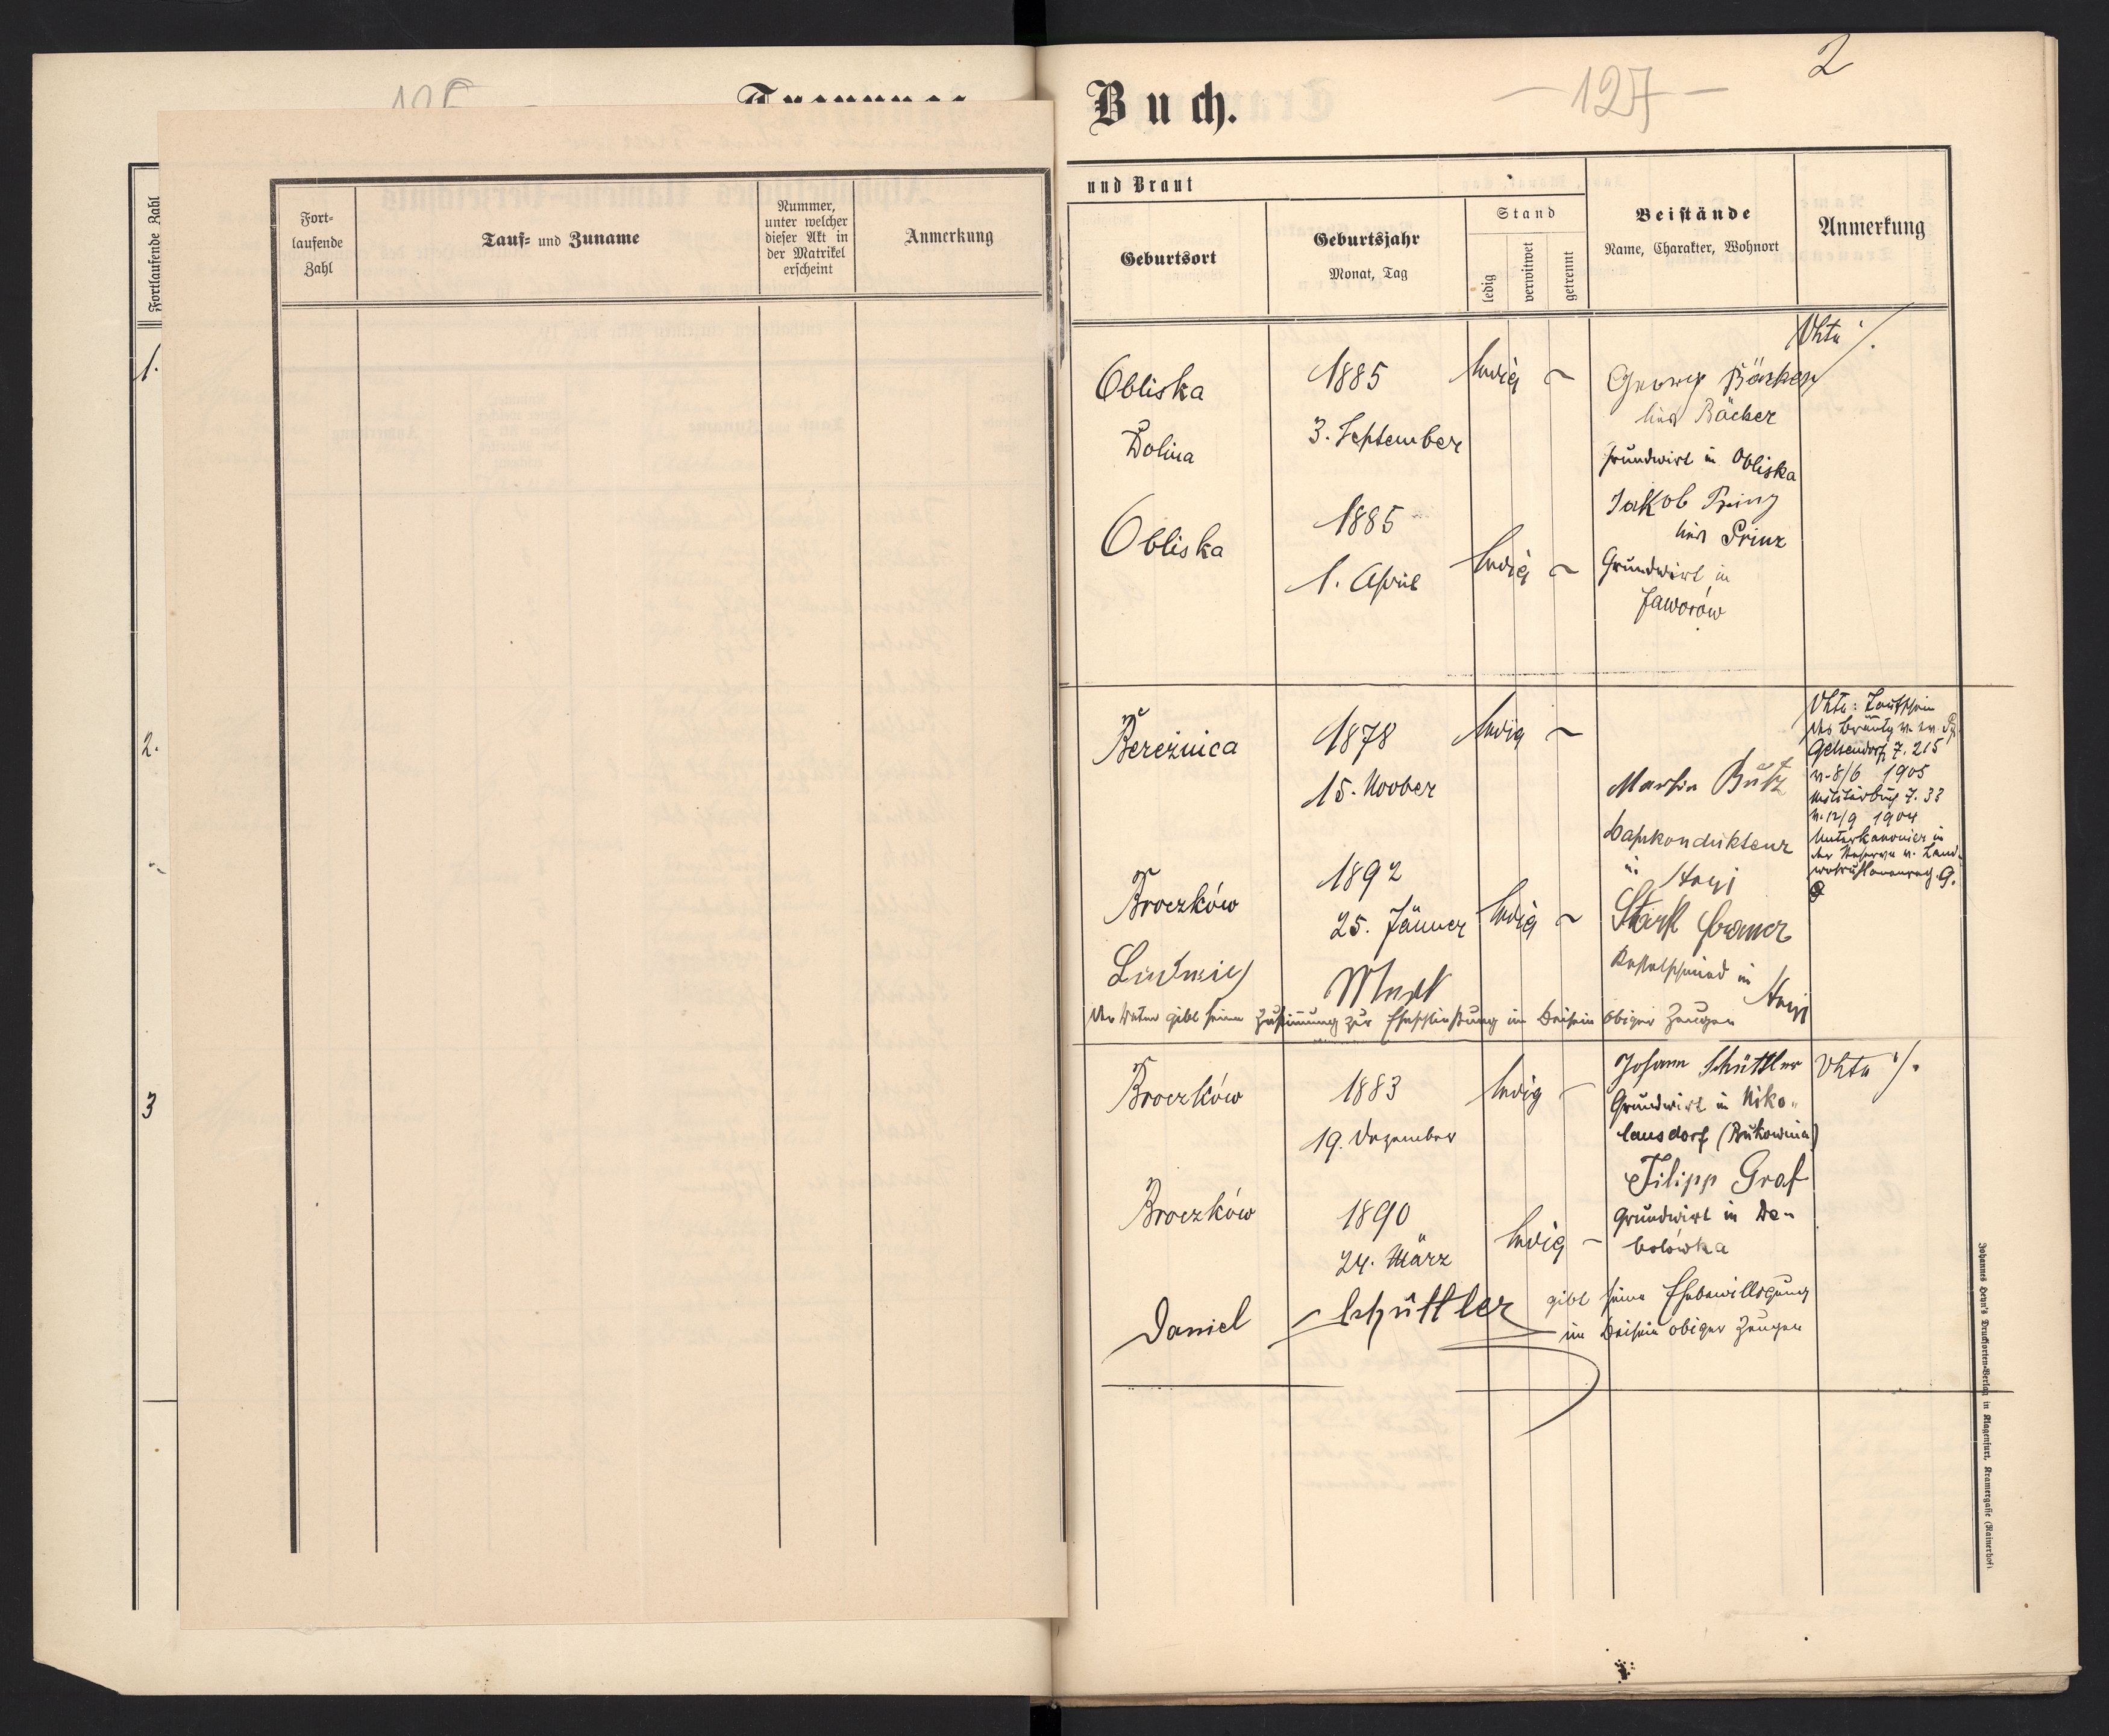 Buch.
— 127 —
2
Fortlaufende Zahl
1.
2.
3
Fort-
laufende
Zahl
Tauf- und Zuname
Nummer,
unter welcher
dieser Akt in
der Matrikel
erscheint
Anmerkung
und Braut
Geburtsort
Geburtsjahr
Monat, Tag
Stand
ledig
verwitwet
getrennt
Beistände
Name, Charakter, Wohnort
Anmerkung
Obliska
Dolina
1885
3. September
ledig
Georg Bäcker
lies Bäcker
Grundwirt in Obliska
Vhta %.
Obliska
1885
1. April
ledig
Jakob Prinz
lies Prinz
Grundwirt in
Jaworów
Bereźnica
1878
15. Novber
ledig
Martin Butz
Bahnkondukteur
in Stryj
Vhta: Taufschein
des Bräutg v. ev. Pf.
Gelsendorf Z. 215
v. 8/6 1905
Z. 33
v. 12/9 1904
Unterkanonier in
der Reserve
Broczków
1892
25. Jänner
ledig
Stark
Kesselschmied in
Stryj
Ludwig
Der Vater gibt seine Zustimmung zur Eheschließung im Beisein obiger Zeugen
Broczków
1883
19. Dezember
ledig
Johann Schüttler
Grundwirt in Niko-
lausdorf (Bukowina)
Vhta %.
Broczków
1890
24. März
ledig
Filipp Graf
Grundwirt in De-
bolówka
Daniel Schüttler gibt seine Ehebewilligung
im Beisein obiger Zeugen
Johannes Heyn's Drucksorten-Verlag in Klagenfurt, Kramergasse (Rainerhof).